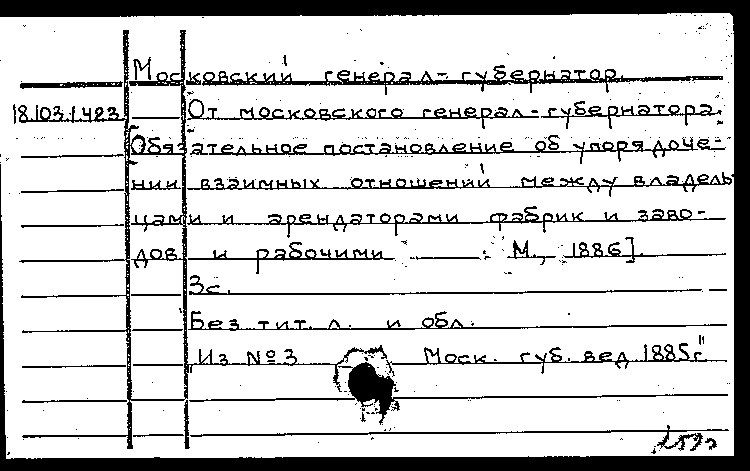 Московский генерал-губернатор.
18.103.1.423 От московского генерал-губернатора.
[Обязательное постановление об упорядоче-
нии взаимных отношений между владель
цами и арендаторами фабрик и заво-
дов и рабочими . М., 1886].
3с.
Без тит. л. и обл.
"Из №3 Моск. губ. вед 1885г"